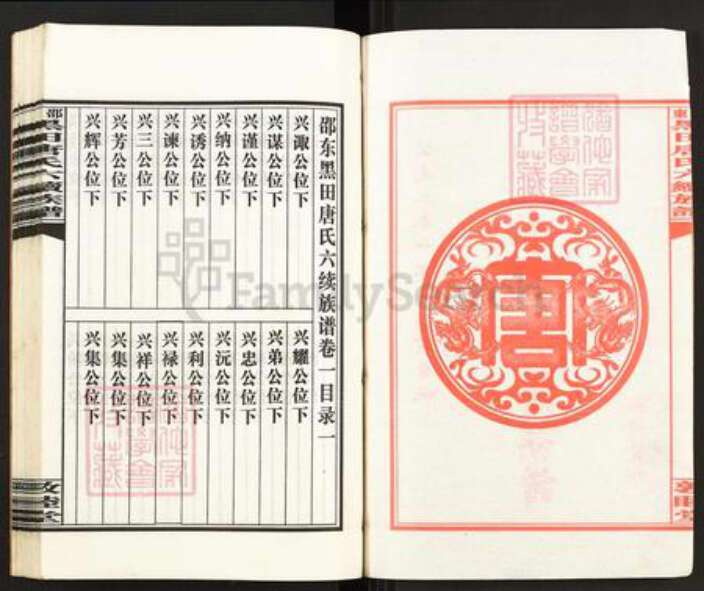 唐
邵东黑田唐氏六续族谱卷一目录一
兴诹公位下
兴谋公位下
兴谨公位下
兴纳公位下
兴诱公位下
兴谏公位下
兴三公位下
兴芳公位下
兴辉公位下
兴耀公位下
兴弟公位下
兴忠公位下
兴沅公位下
兴利公位下
兴禄公位下
兴祥公位下
兴集公位下
兴集公位下
FamilySearch